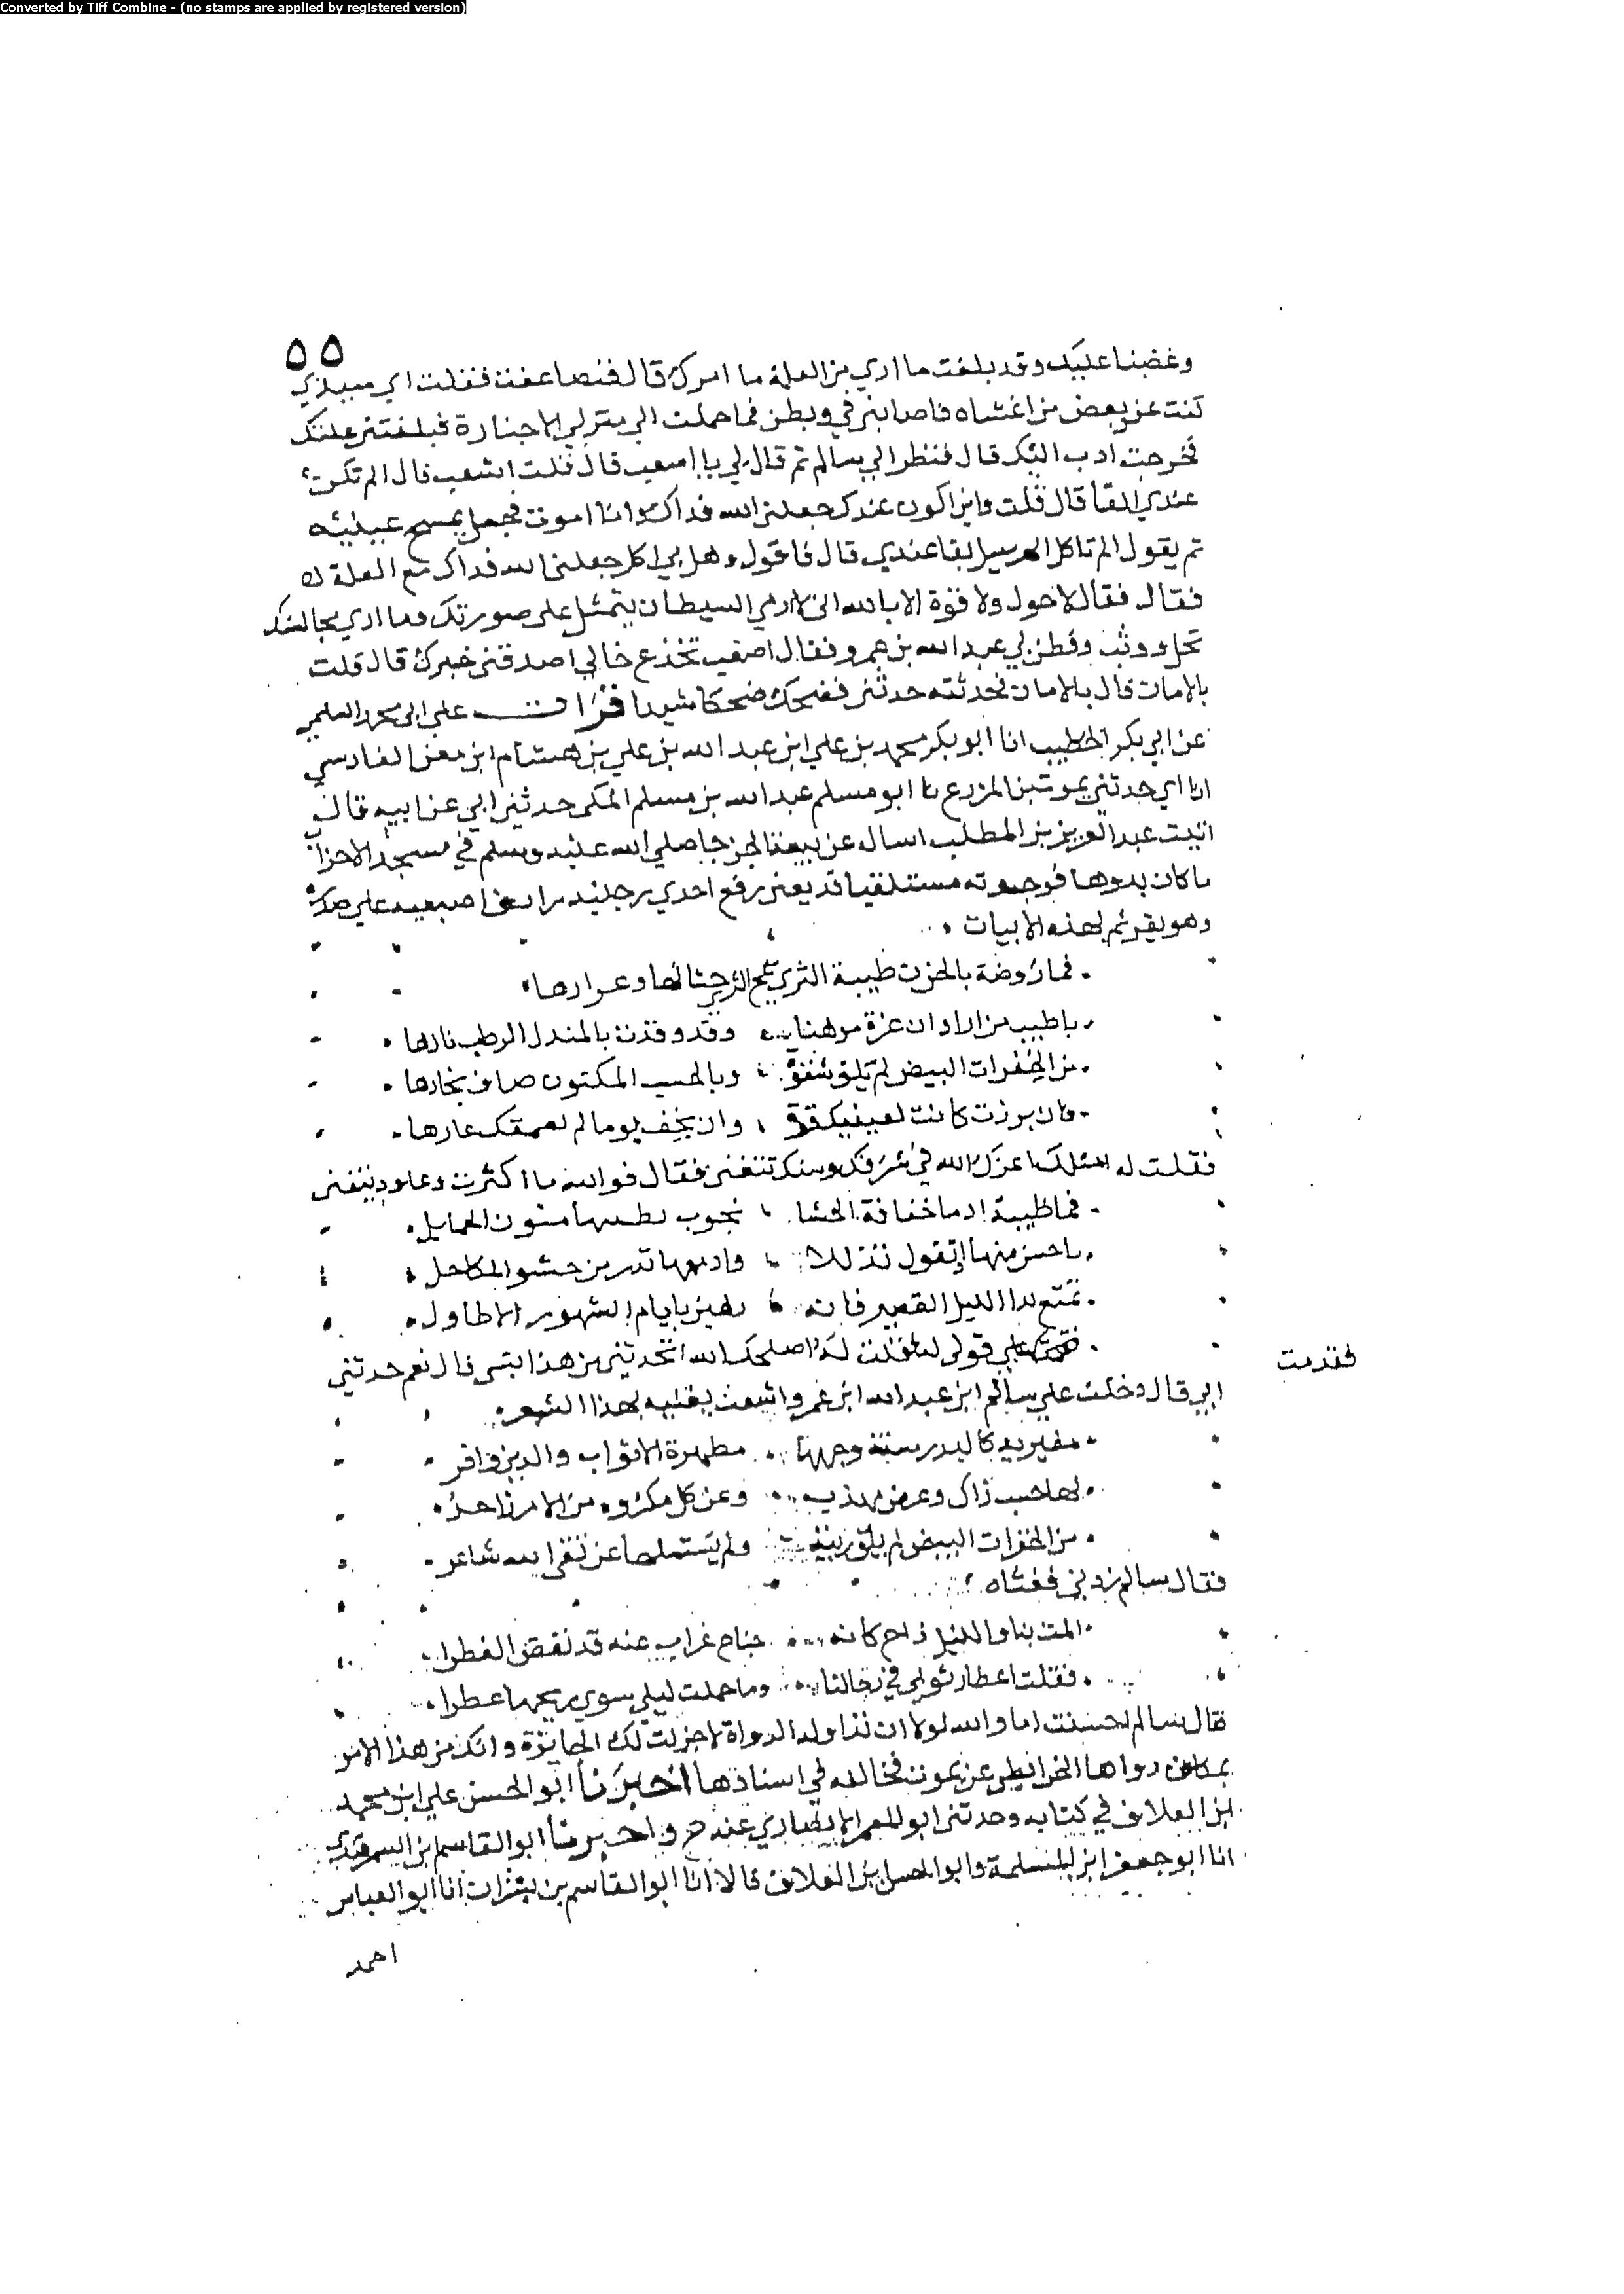 Converted by Tiff Combine - (no stamps are applied by registered version)
٥٥
وغضبنا عليك وقد بلغت ما اري من العلة ما امرك قال فتضاعفت فقلت اي سيدي
كنت عند بعض من اغشاه فاصابني في وبطن فما حملت الي منزلي الا جنازة فبلغتني علتك
فخرجت ادب اليك قال فنظر الي سالم ثم قال لي يا اشعب قال قلت اشعب قال الم تكن
عندي انفا قال قلت واين اكون عندك جعلني الله فداك وانا اموت فجعل يمسح عينيه
ثم يقول الم تاكل الهريس انفا عندي قال فاقول وهل بي اكل جعلني الله فداك مع العلة
فقال فقال لا حول ولا قوة الا بالله اني لاري الشيطان يتمثل علي صورتك وما اري مجالستك
تحل ووثب وفطن لي عبد الله بن عمرو فقال اشعب تخدع خالي اصدقني خبرك قال قلت
بالامان قال بالامان فحدثته حدثني فضحك ضحكا شديدا قرات علي ابي محمد السلمي
عن ابي بكر الخطيب انا ابو بكر محمد بن علي ابن عبد الله بن علي بن هشام ابن معن الفارسي
انا ابي حدثني يموت بن المزرع نا ابو مسلم عبد الله بن مسلم المكي حدثني ابي عن ابيه قال
اتيت عبد العزيز بن المطلب اسال عن بيعة الجن صلي الله عليه وسلم في مسجد الاحزاب
ما كان بدوها فوجدته مستلقيا قد يعني رفع احدي رجليه اصبعيه علي صدره
وهو يترنم بهذه الابيات
فما روضة بالحزن طيبة الثري يمج الندي جثجاثها وعرارها
باطيب من اردان عزة موهنا وقد وقدت بالمندل الرطب نارها
من الخفرات البيض لم تلق شقوة وبالحسب المكنون صاف نجارها
فان برزت كانت لعينيك قرة وان تخف يوما لم يعممك عارها
فقلت له اسئلك اعزك الله في شرفك وسنك تتغني فقال فوالله ما اكثرت وعاود يتغني
فما ظبية ادما خفاقة الحشا تجوب بظلفها متون الخمايل
باحسن منها اذ تقول تذللا وادمعها تذرين حشو المكاحل
تمتع بذا الليل القصير فانه رهين بايام الشهور الاطاول
فندمت علي قولي له فقلت له اصلحك الله اتحدثني من هذا بشي قال نعم حدثني
فندمت
ابي قال دخلت علي سالم ابن عبد الله ابن عمر واشعب يغنيه بهذا الشعر
مغيرية كالبدر سنة وجهها مطهرة الاثواب والدين وافر
لها حسب زاك وعرض مهذب وعن كل مكروه من الامر زاجر
من الخفرات البيض لم تلق ريبة ولم يستملها عن تقي الله شاعر
فقال سالم زدني فغناه
المت بنا والليل داج كانه جناح غراب عنه قد نفض القطرا
فقلت اعطار ثوي في رحالنا وما حملت ليلي سوي ريحها عطرا
قال سالم احسنت اما والله لولا ان تداوله الرواة لاجزلت لك الجايزة وانك من هذا الامر
بمكان رواها الخرايطي عن يموت فخالفه في اسنادها اخبرنا ابو الحسن علي ابن محمد
ابن العلاف في كتابه وحدثني ابو المعمر الانصاري عنه ح واخبرنا ابو القاسم ابن السمرقندي
انا ابو جعفر ابن المسلمة وابو الحسن ابن العلاف قالا انا ابو القاسم بن بشران انا ابو العباس
احمد